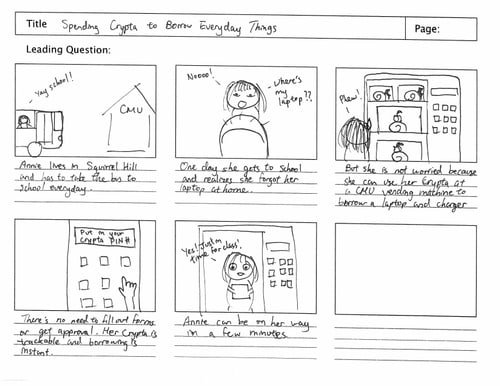 Title Spending Crypta to Borrow Everyday Things
Page:
Leading Question:
Yay school!
CMU
Annie lives in Squirrel Hill
and has to take the bus to
school everyday.
Noooo!
Where's
my
laptop??
One day she gets to school
and realizes she forgot her
laptop at home.
Phew!
But she is not worried because
she can use her Crypta at
a CMU vending machine to
borrow a laptop and charger
Put in your
Crypta PIN#
There's no need to fill out forms
or get approval. Her Crypta is
trackable and borrowing is
instant.
Yes! Just in
time for class!
Annie can be on her way
in a few minutes